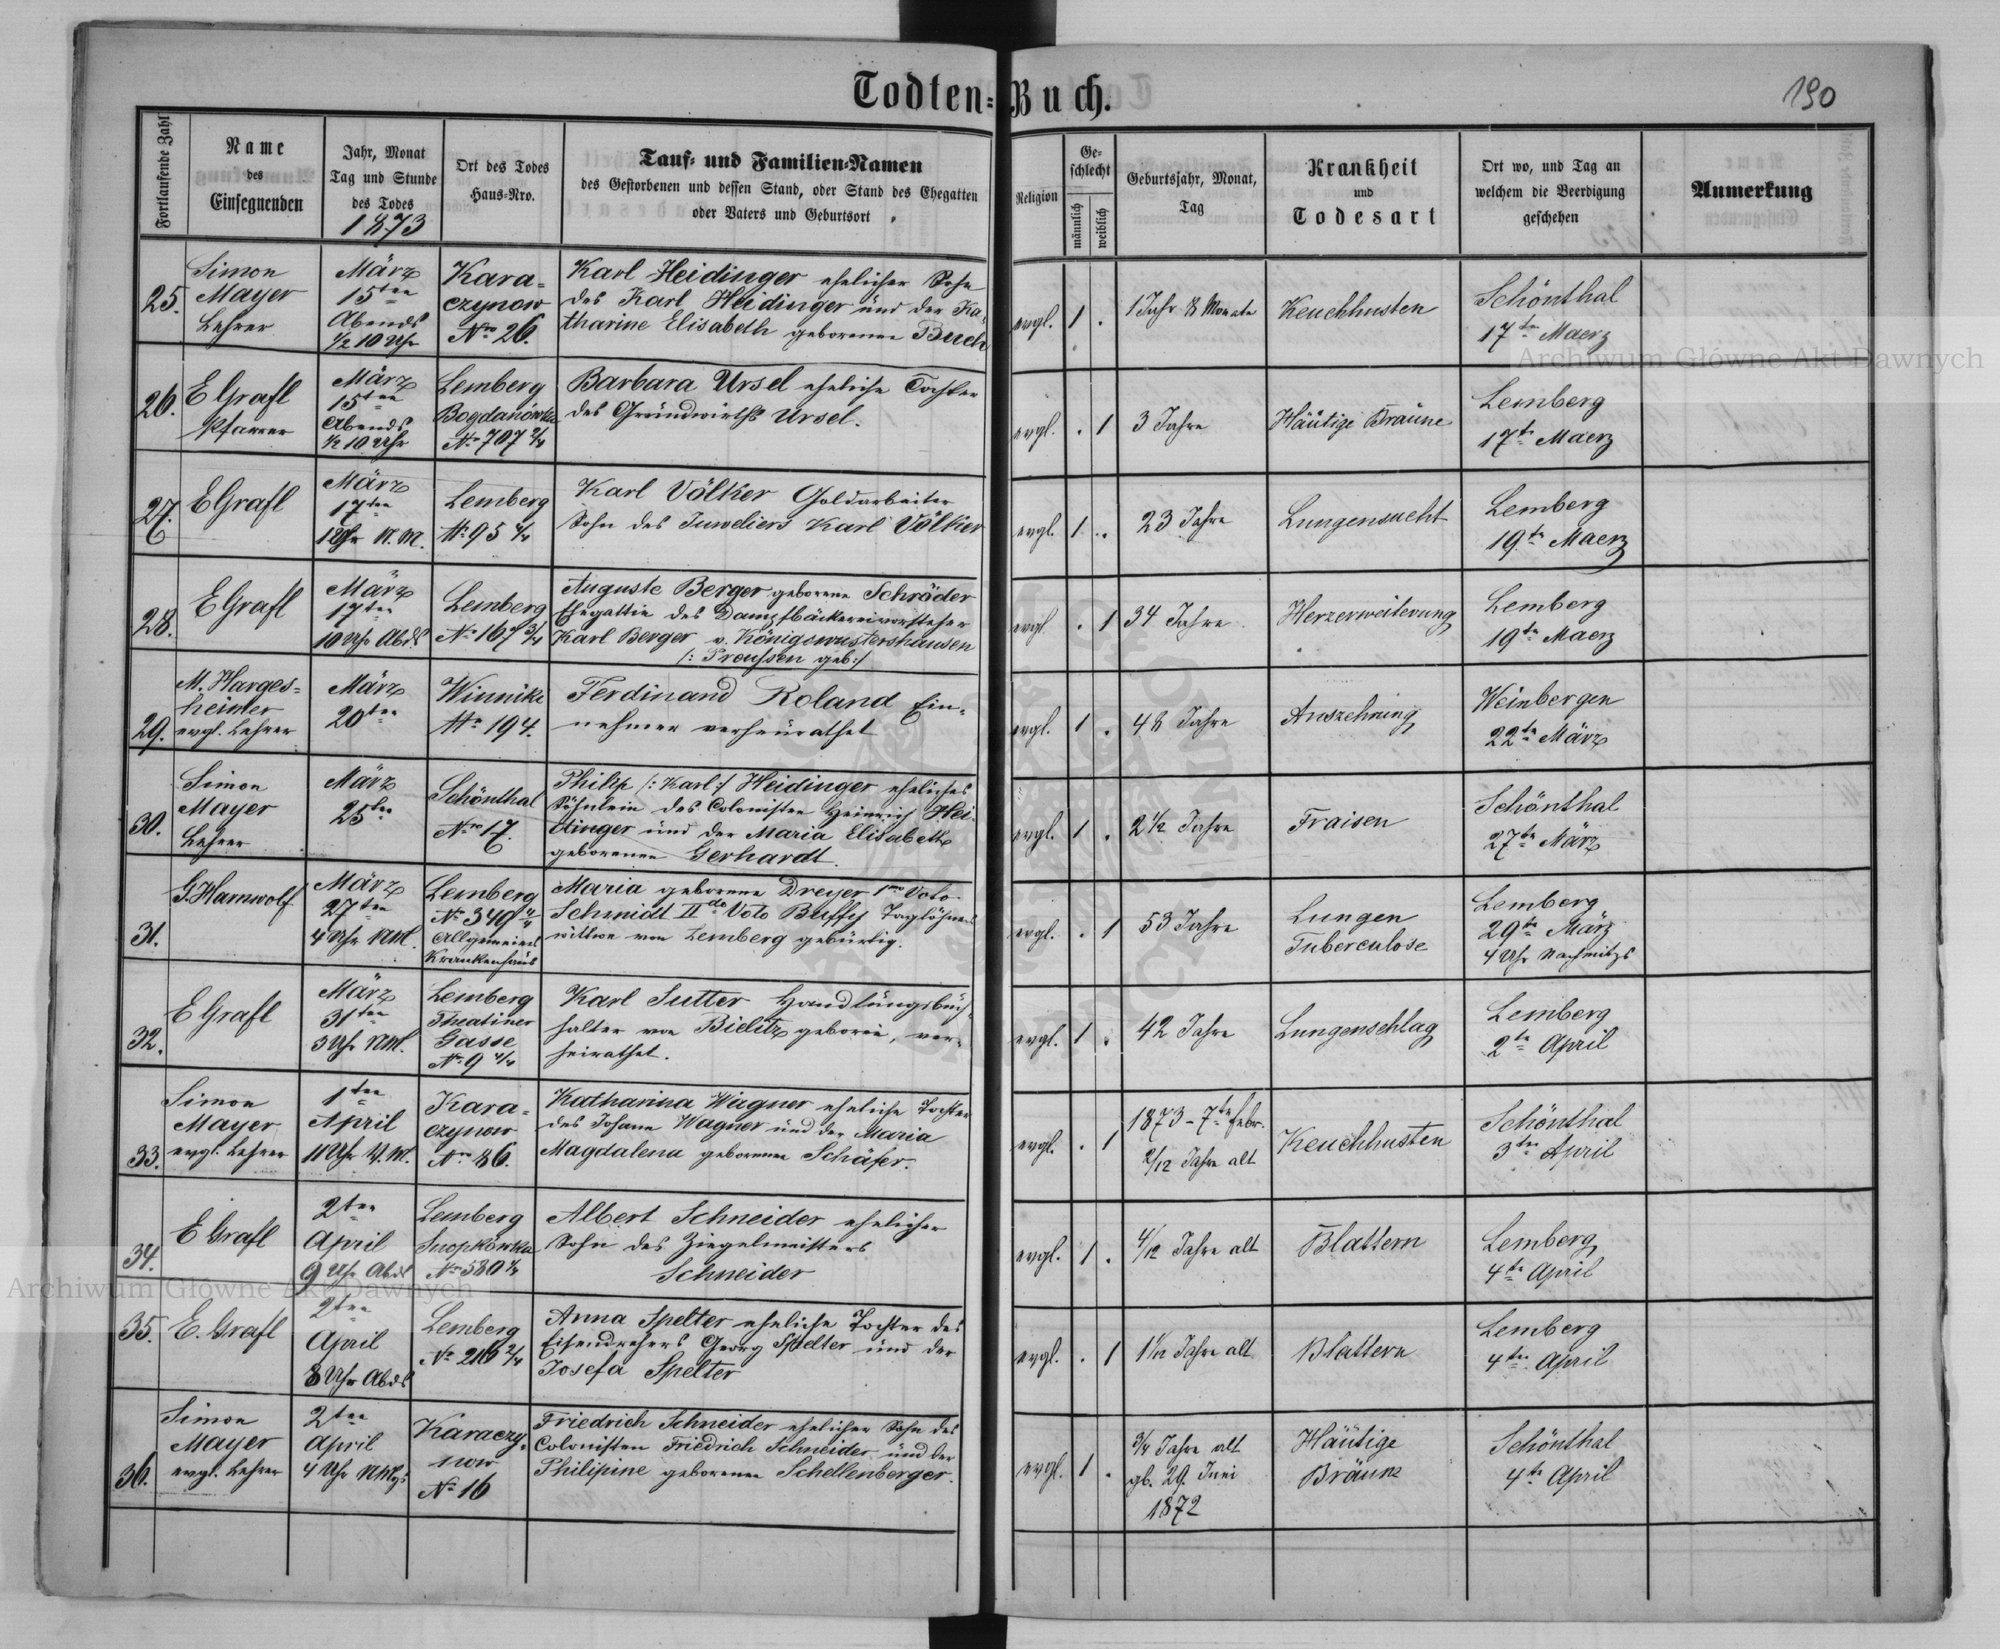 Todten-Buch.
190
Fortlaufende Zahl
Name
des
Einsegnenden
Jahr, Monat
Tag und Stunde
des Todes
1873
Ort des Todes
Haus-Nro.
Tauf- und Familien-Namen
des Gestorbenen und dessen Stand, oder Stand des Ehegatten
oder Vaters und Geburtsort
Religion
Ge-
schlecht
männlich
weiblich
Geburtsjahr, Monat,
Tag
Krankheit
und
Todesart
Ort wo, und Tag an
welchem die Beerdigung
geschehen
Anmerkung
25.
Simon
Mayer
Lehrer
März
15ten
Abends
½ 10 Uhr
Kara-
czynow
Nro 26.
Karl Heidinger ehelicher Sohn
des Karl Heidinger und der Ka-
tharine Elisabeth geborenen Buch
evgl.
1
.
1 Jahr 8 Monate
Keuchhusten
Schönthal
17te Maerz
26.
E Grafl
Pfarrer
März
15ten
Abends
½ 10 Uhr
Lemberg
Bogdanówka
No 707 2/4
Barbara Ursel eheliche Tochter
des Grundwirths Ursel.
evgl.
. 1
3 Jahre
Häutige Bräune
Lemberg
17te Maerz
27.
E Grafl
März
17ten
1 Uhr N. M.
Lemberg
No 95 4/4
Karl Völker Goldarbeiter
Sohn des Juweliers Karl Völker
evgl.
1 .
23 Jahre
Lungensucht
Lemberg
19te Maerz
28.
E Grafl
März
17ten
10 Uhr Abds
Lemberg
No 167 3/4
Auguste Berger geborene Schräder
Ehegattin des Dampfbäckereivorsteher
Karl Berger v. Königswustershausen
/: Preussen geb:/
evgl.
. 1
34 Jahre
Herzerweiterung
Lemberg
19te Maerz
29.
M. Harges-
heimer
evgl. Lehrer
März
20ten
Winnike
No 194.
Ferdinand Roland Ein-
nehmer verheurathet
evgl.
1 .
48 Jahre
Auszehrung
Weinbergen
22te März
30.
Simon
Mayer
Lehrer
März
25ten
Schönthal
Nro 17.
Philip /: Karl:/ Heidinger eheliches
Söhnlein des Colonisten Heinrich Hei-
dinger und der Maria Elisabeth
geborenen Gerhardt.
evgl.
1 .
2½ Jahre
Fraisen
Schönthal
27te März
31.
G. Hamwolf
März
27ten
4 Uhr NM.
Lemberg
No 340 4/4
Allgemeines
Krankenhaus
Maria geborene Dreyer 1mo Voto
Schmidt IIdo Voto Buffy Taglöhners
wittwe von Lemberg gebürtig.
evgl.
. 1
53 Jahre
Lungen
Tuberculose
Lemberg
29te März
4 Uhr Nachmitgs
32.
E Grafl
März
31ten
3 Uhr NM.
Lemberg
Theatiner
Gasse
No 9 4/4
Karl Sutter Handlungsbuch-
halter von Bielitz geboren, ver-
heirathet.
evgl.
1 .
42 Jahre
Lungenschlag
Lemberg
2te April
33.
Simon
Mayer
evgl. Lehrer
1ten
April
11 Uhr V. M.
Kara-
czynow
Nro 86.
Katharina Wagner eheliche Tochter
des Johann Wagner und der Maria
Magdalena geborenen Schäfer.
evgl.
. 1
1873 - 7te Febr.
2/12 Jahre alt
Keuchhusten
Schönthal
3ten April
34.
E Grafl
2ten
April
9 Uhr Abds
Lemberg
Snopkówka
No 580 1/4
Albert Schneider ehelicher
Sohn des Ziegelmeisters
Schneider
evgl.
1 .
4/12 Jahre alt
Blattern
Lemberg
4te April
35.
E. Grafl
2ten
April
8 Uhr Abds
Lemberg
No 216 2/4
Anna Spelter eheliche Tochter des
Eisendrehers Georg Spelter und der
Josefa Spelter
evgl.
. 1
1½ Jahre alt
Blattern
Lemberg
4te April
36.
Simon
Mayer
evgl. Lehrer
2ten
April
4 Uhr NMgs
Karaczy-
now
No 16
Friedrich Schneider ehelicher Sohn des
Colonisten Friedrich Schneider und der
Philipine geborenen Schellenberger.
evgl.
1 .
3/4 Jahre alt
gb. 29. Juni
1872
Häutige
Bräune
Schönthal
4te April
Archiwum Główne Akt Dawnych
Archiwum Główne Akt Dawnych